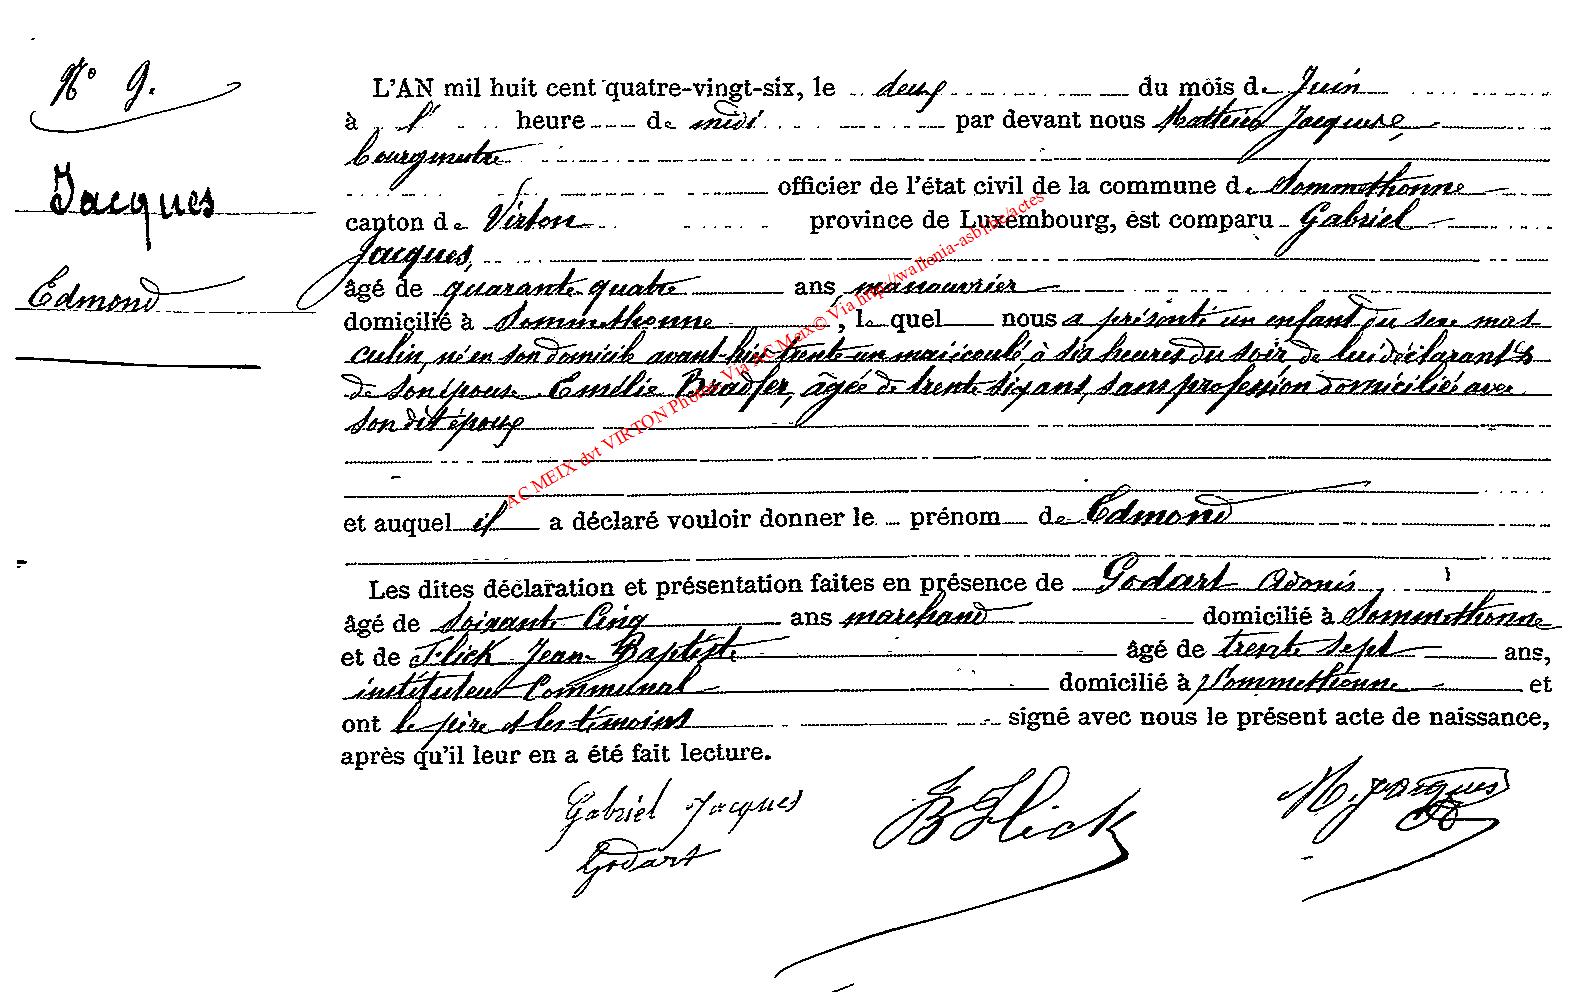 N° 9.
Jacques
Edmond
L'AN mil huit cent quatre-vingt-six, le deux du mois de Juin
à 1 heure de midi par devant nous Mathieu Jacques,
bourgmestre
officier de l'état civil de la commune de Sommethonne
canton de Virton province de Luxembourg, est comparu Gabriel
Jacques,
âgé de quarante quatre ans, manouvrier
domicilié à Sommethonne, lequel nous a présenté un enfant du sexe mas
culin, né en son domicile avant-hier trente-un mai écoulé, à six heures du soir, de lui déclarant &
de son épouse Emélie Bradfer, âgée de trente six ans, sans profession domiciliée avec
son dit époux
et auquel il a déclaré vouloir donner le prénom de Edmond
Les dites déclaration et présentation faites en présence de Godart Adonis
âgé de Soixante Cinq ans marchand domicilié à Sommethonne
et de Flick Jean Baptiste âgé de trente sept ans,
instituteur Communal domicilié à Sommethonne et
ont le père et les témoins signé avec nous le présent acte de naissance,
après qu'il leur en a été fait lecture.
Gabriel Jacques
Godart
JB Flick
M. Jacques
AC MEIX dvt VIRTON Photos Via AC Meix© Via http://wallonia-asbl.be/actes